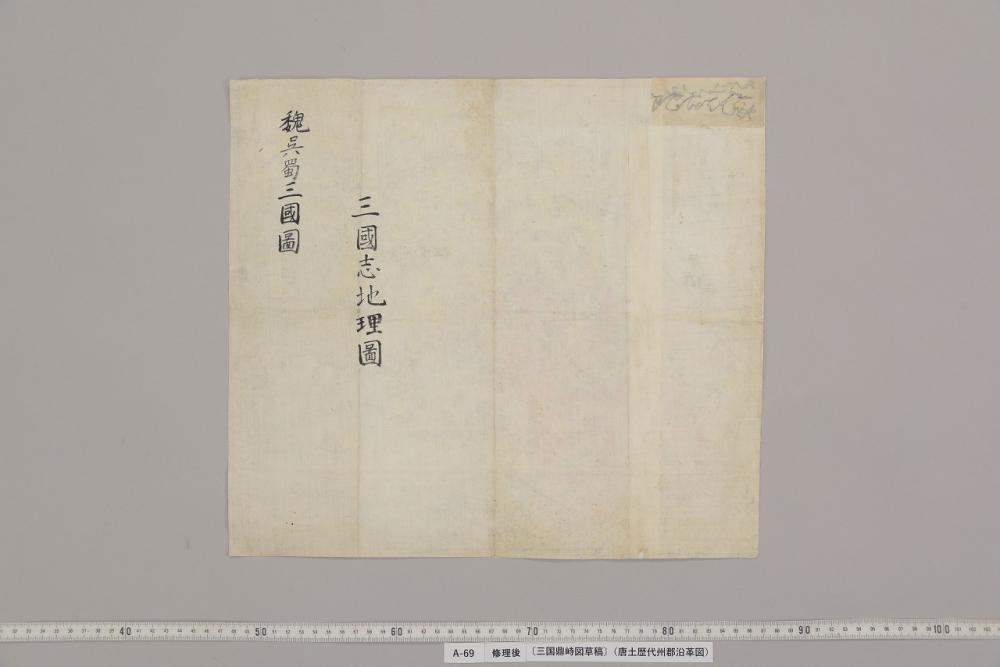 三國志地理圖
魏呉蜀三國圖
40 50 60 70 80 90 100
A-69 修理後 〔三国鼎峙図草稿〕（唐土歴代州郡沿革図）